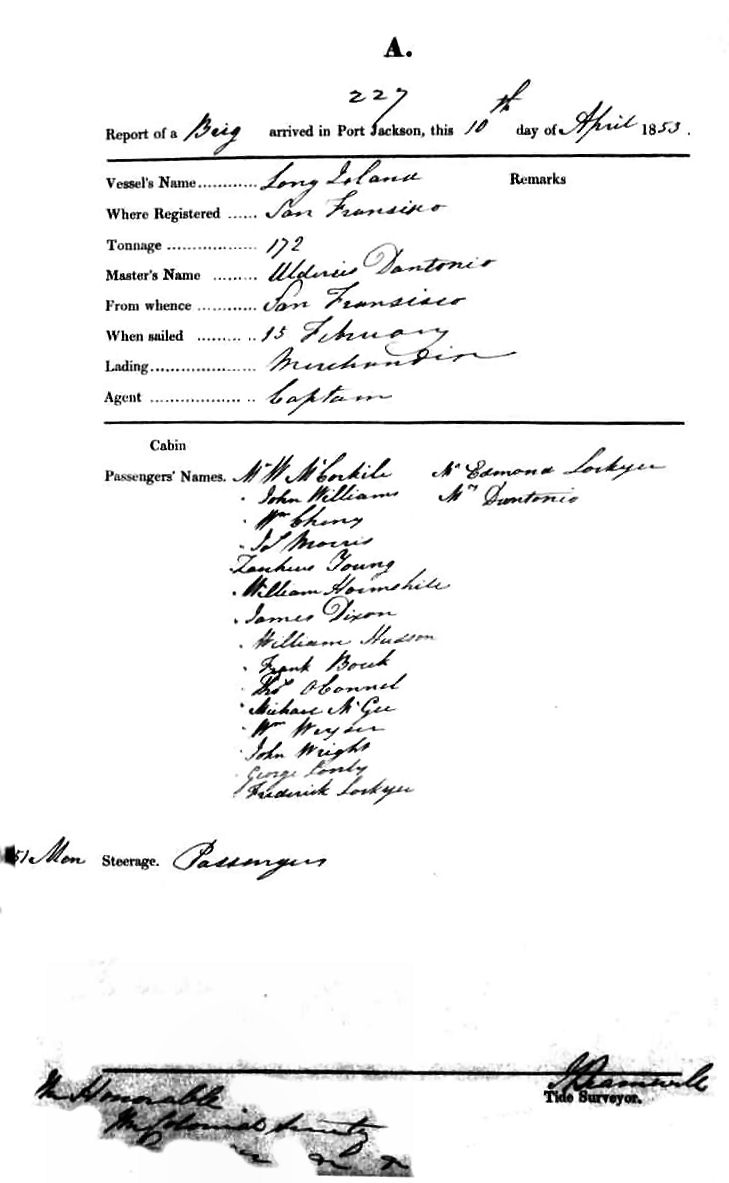 A.
227
Report of a Brig arrived in Port Jackson, this 10th day of April 1853.
Vessel's Name............ Long Island Remarks
Where Registered ...... San Fransisco
Tonnage .................. 172
Master's Name ......... Dantonio
From whence ............ San Fransisco
When sailed ........... 15 February
Lading..................... Merchandise
Agent .................... Captain
Cabin
Passengers' Names. Mr W McCorkile Mr Edmond Lockyer
John Williams Mrs Dantonio
Wm Cheny
Js Morris
Young
William
James Dixon
William Hudson
Frank
Thos OConnel
Michael McGee
Wm Weyser
John Wright
George
Frederick Lockyer
51 Men Steerage. Passengers
Tide Surveyor.
The Honorable
The Colonial